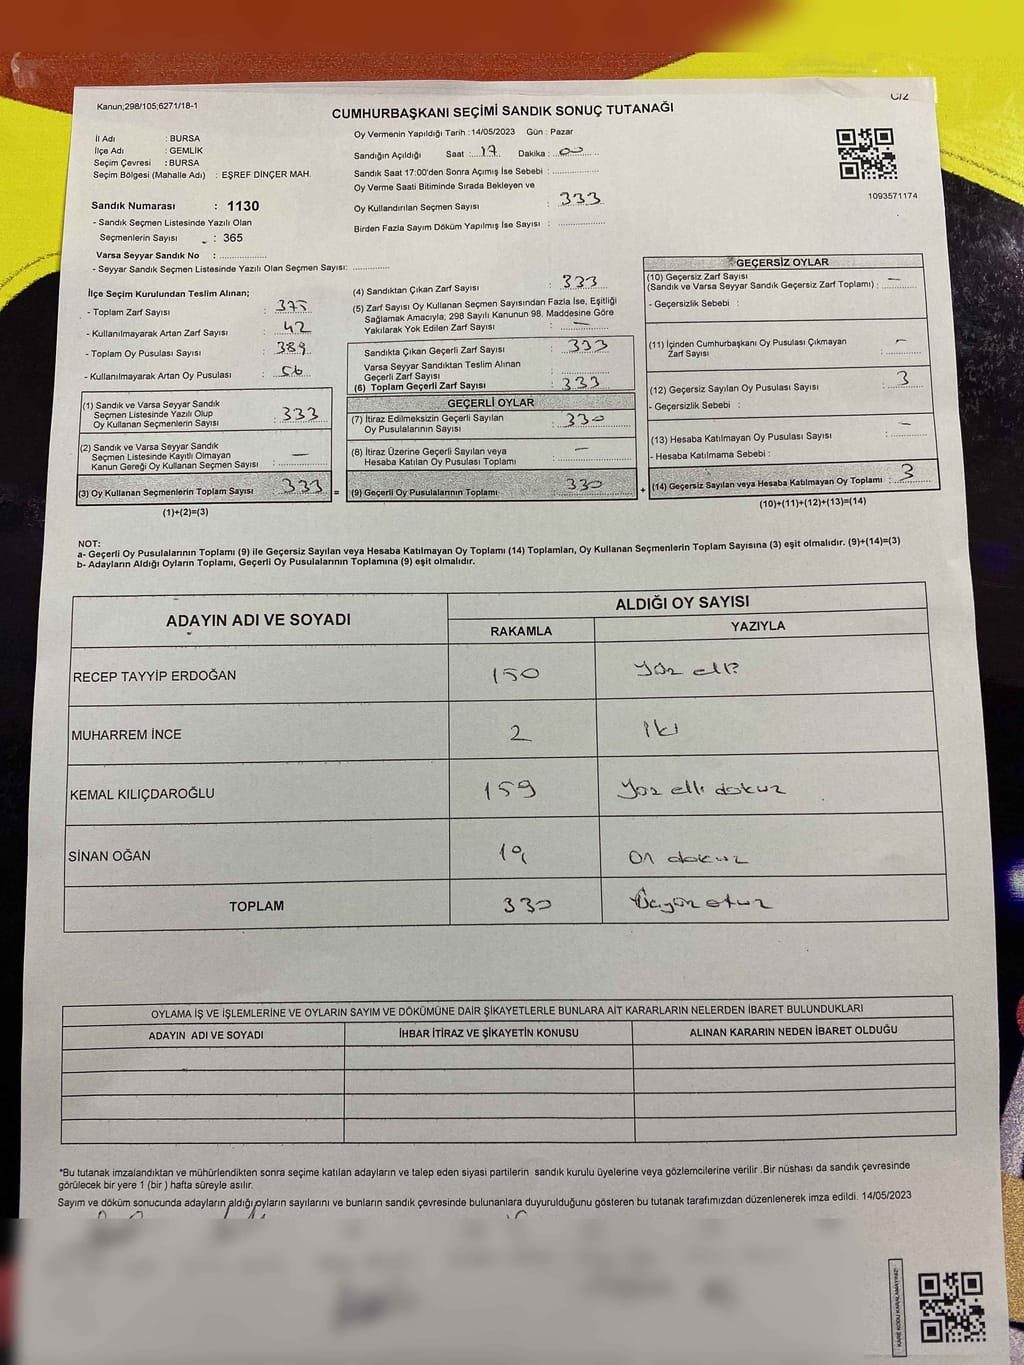 Kanun;298/105;6271/18-1
CUMHURBAŞKANI SEÇİMİ SANDIK SONUÇ TUTANAĞI
İl Adı : BURSA
İlçe Adı : GEMLİK
Seçim Çevresi : BURSA
Seçim Bölgesi (Mahalle Adı) : EŞREF DİNÇER MAH.
Sandık Numarası : 1130
- Sandık Seçmen Listesinde Yazılı Olan
Seçmenlerin Sayısı : 365
Varsa Seyyar Sandık No : ................
- Seyyar Sandık Seçmen Listesinde Yazılı Olan Seçmen Sayısı: .............
Oy Vermenin Yapıldığı Tarih : 14/05/2023 Gün : Pazar
Sandığın Açıldığı Saat : 17 Dakika : 00
Sandık Saat 17:00'den Sonra Açımış İse Sebebi : ................
Oy Verme Saati Bitiminde Sırada Bekleyen ve
Oy Kullandırılan Seçmen Sayısı : 333
Birden Fazla Sayım Döküm Yapılmış İse Sayısı : ................
1093571174
İlçe Seçim Kurulundan Teslim Alınan;
- Toplam Zarf Sayısı : 375
- Kullanılmayarak Artan Zarf Sayısı : 42
- Toplam Oy Pusulası Sayısı : 389
- Kullanılmayarak Artan Oy Pusulası : 56
(1) Sandık ve Varsa Seyyar Sandık
Seçmen Listesinde Yazılı Olup
Oy Kullanan Seçmenlerin Sayısı : 333
(2) Sandık ve Varsa Seyyar Sandık
Seçmen Listesinde Kayıtlı Olmayan
Kanun Gereği Oy Kullanan Seçmen Sayısı : —
(3) Oy Kullanan Seçmenlerin Toplam Sayısı : 333 =
(1)+(2)=(3)
(4) Sandıktan Çıkan Zarf Sayısı : 333
(5) Zarf Sayısı Oy Kullanan Seçmen Sayısından Fazla İse, Eşitliği
Sağlamak Amacıyla; 298 Sayılı Kanunun 98. Maddesine Göre
Yakılarak Yok Edilen Zarf Sayısı : —
Sandıkta Çıkan Geçerli Zarf Sayısı : 333
Varsa Seyyar Sandıktan Teslim Alınan
Geçerli Zarf Sayısı : ............
(6) Toplam Geçerli Zarf Sayısı : 333
GEÇERLİ OYLAR
(7) İtiraz Edilmeksizin Geçerli Sayılan
Oy Pusulalarının Sayısı : 330
(8) İtiraz Üzerine Geçerli Sayılan veya
Hesaba Katılan Oy Pusulası Toplamı : —
(9) Geçerli Oy Pusulalarının Toplamı : 330 +
GEÇERSİZ OYLAR
(10) Geçersiz Zarf Sayısı
(Sandık ve Varsa Seyyar Sandık Geçersiz Zarf Toplamı) : —
- Geçersizlik Sebebi :
(11) İçinden Cumhurbaşkanı Oy Pusulası Çıkmayan
Zarf Sayısı : —
(12) Geçersiz Sayılan Oy Pusulası Sayısı : 3
- Geçersizlik Sebebi :
(13) Hesaba Katılmayan Oy Pusulası Sayısı : —
- Hesaba Katılmama Sebebi :
(14) Geçersiz Sayılan veya Hesaba Katılmayan Oy Toplamı : 3
(10)+(11)+(12)+(13)=(14)
NOT:
a- Geçerli Oy Pusulalarının Toplamı (9) ile Geçersiz Sayılan veya Hesaba Katılmayan Oy Toplamı (14) Toplamları, Oy Kullanan Seçmenlerin Toplam Sayısına (3) eşit olmalıdır. (9)+(14)=(3)
b- Adayların Aldığı Oyların Toplamı, Geçerli Oy Pusulalarının Toplamına (9) eşit olmalıdır.
ADAYIN ADI VE SOYADI ALDIĞI OY SAYISI
RAKAMLA YAZIYLA
RECEP TAYYİP ERDOĞAN 150 Yüz elli
MUHARREM İNCE 2 İki
KEMAL KILIÇDAROĞLU 159 Yüz elli dokuz
SİNAN OĞAN 19 On dokuz
TOPLAM 330 Üçyüz otuz
OYLAMA İŞ VE İŞLEMLERİNE VE OYLARIN SAYIM VE DÖKÜMÜNE DAİR ŞİKAYETLERLE BUNLARA AİT KARARLARIN NELERDEN İBARET BULUNDUKLARI
ADAYIN ADI VE SOYADI İHBAR İTİRAZ VE ŞİKAYETİN KONUSU ALINAN KARARIN NEDEN İBARET OLDUĞU
*Bu tutanak imzalandıktan ve mühürlendikten sonra seçime katılan adayların ve talep eden siyasi partilerin sandık kurulu üyelerine veya gözlemcilerine verilir .Bir nüshası da sandık çevresinde
görülecek bir yere 1 (bir ) hafta süreyle asılır.
Sayım ve döküm sonucunda adayların aldığı oyların sayılarını ve bunların sandık çevresinde bulunanlara duyurulduğunu gösteren bu tutanak tarafımızdan düzenlenerek imza edildi. 14/05/2023
KARE KODU KARALAMAYINIZ!